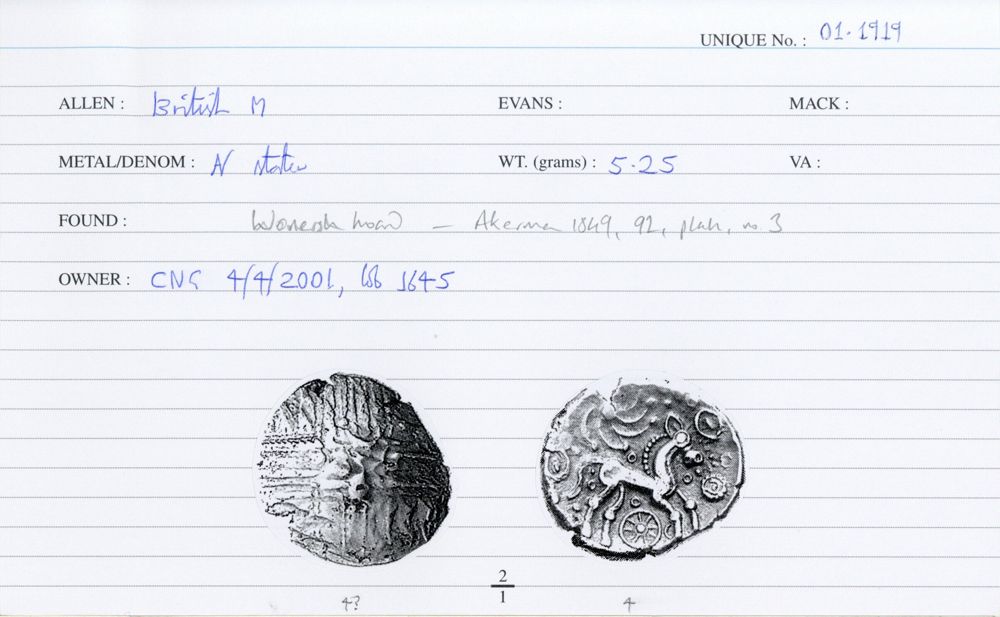 UNIQUE No. : 01.1919
ALLEN : British M EVANS : MACK :
METAL/DENOM : N stater WT. (grams) : 5.25 VA :
FOUND : Wonersh hoard – Akerman 1849, 92, plate, no. 3
OWNER : CNG 4/4/2001, lot 1645
2
1
4? 4